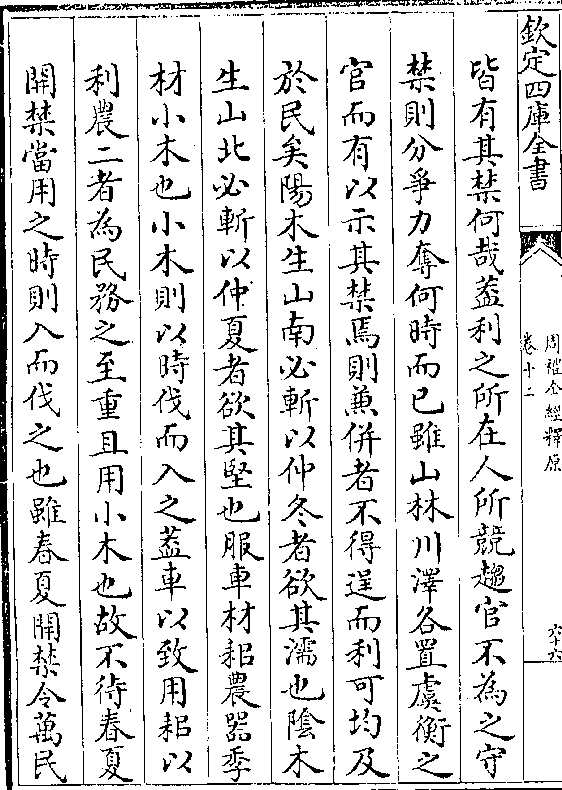 欽定四庫全書
周禮全經釋原
卷十二
六十六
皆有其禁何哉葢利之所在人所競趨官不為之守
禁則分爭力奪何時而已雖山林川澤各置虞衡之
官而有以示其禁焉則兼併者不得逞而利可均及
於民矣陽木生山南必斬以仲冬者欲其濡也陰木
生山北必斬以仲夏者欲其堅也服車材耜農器季
材小木也小木則以時伐而入之葢車以致用耜以
利農二者為民務之至重且用小木也故不待春夏
開禁當用之時則入而伐之也雖春夏開禁令萬民